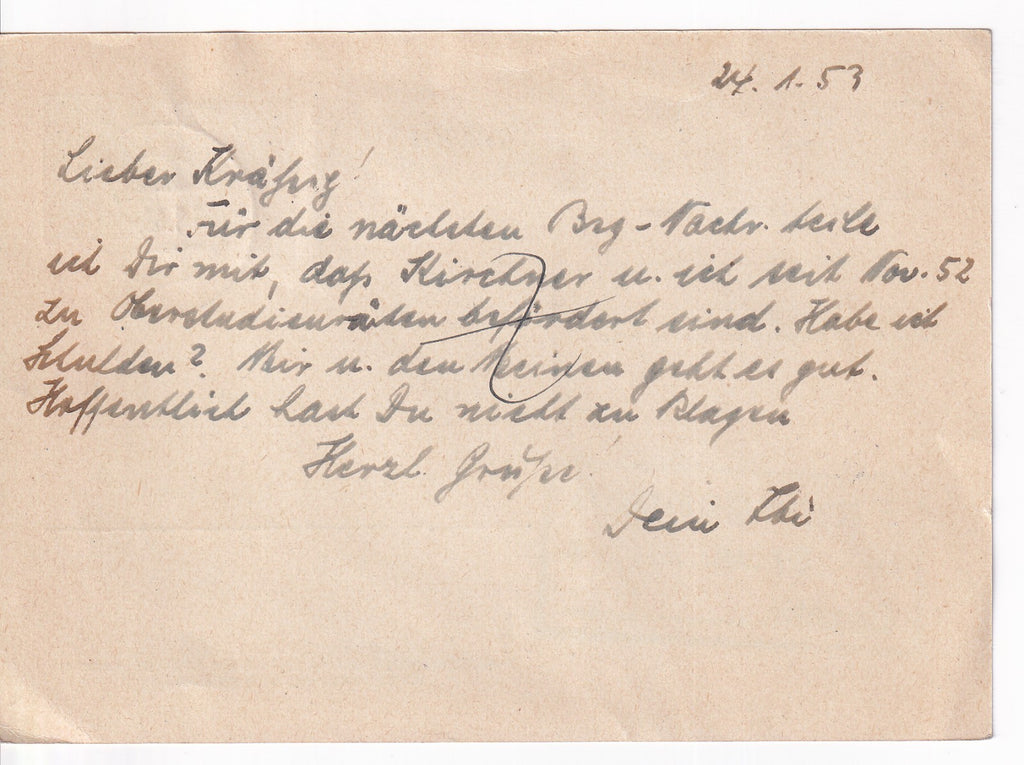 24. 1. 53
Lieber Kräßig!
Für die nächsten Brg-Nachr. teile
ich Dir mit, daß Kirchner u. ich seit Nov. 52
zu Oberstudienräten befördert sind. Habe ich
Schulden? Mir u. den Meinen geht es gut.
Hoffentlich hast Du nicht zu klagen
Herzl. Grüße!
Dein